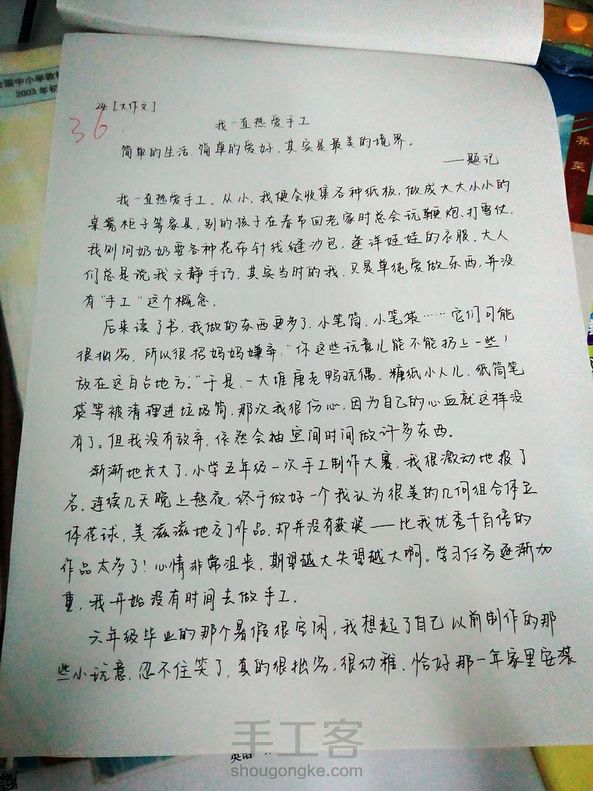 全国中小学教材
2003年初
24.[大作文]
36
我一直热爱手工
简单的生活,简单的爱好,其实是最美的境界。
——题记
我一直热爱手工。从小,我便会收集各种纸板,做成大大小小的
桌凳柜子等家具,别的孩子在春节回老家时总会玩鞭炮、打雪仗,
我则问奶奶要各种花布针线缝沙包,缝洋娃娃的衣服。大人
们总是说我文静手巧,其实当时的我,只是单纯爱做东西,并没
有"手工"这个概念。
后来读了书,我做的东西更多了,小笔筒、小笔袋……它们可能
很拙劣,所以很招妈妈嫌弃:"你这些玩意儿能不能扔上一些!
放在这白占地方。"于是,一大堆唐老鸭玩偶、糖纸小人儿、纸筒笔
袋等被清理进垃圾筒,那次我很伤心,因为自己的心血就这样没
有了。但我没有放弃,依然会抽空闲时间做许多东西。
渐渐地长大了,小学五年级一次手工制作大赛,我很激动地报了
名,连续几天晚上熬夜,终于做好一个我认为很美的几何组合体立
体花球,美滋滋地交了作品,却并没有获奖——比我优秀千百倍的
作品太多了!心情非常沮丧,期望越大失望越大啊。学习任务逐渐加
重,我开始没有时间去做手工。
六年级毕业的那个暑假很空闲,我想起了自己以前制作的那
些小玩意,忍不住笑了,真的很拙劣,很幼稚,恰好那一年家里安装
手工客
shougongke.com
英语